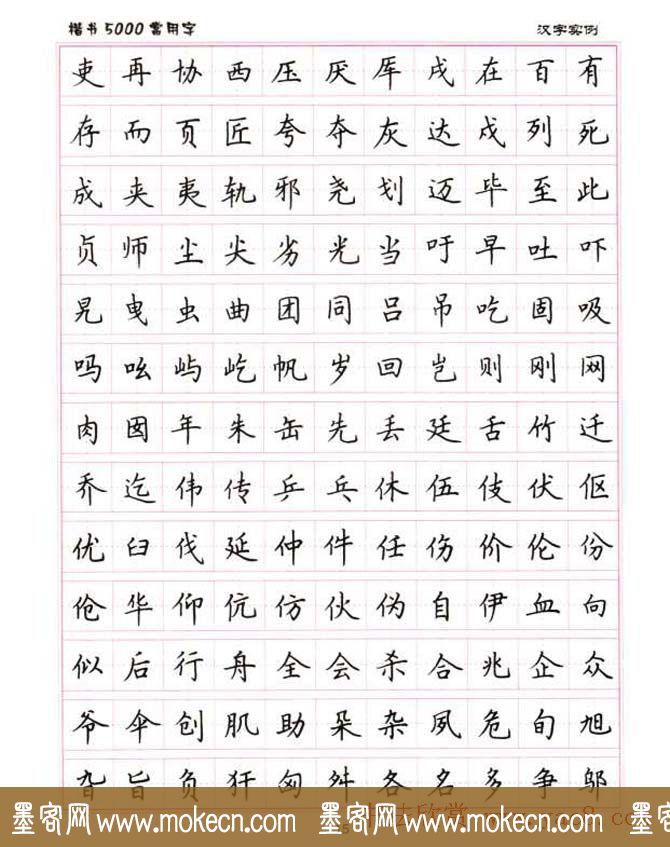 楷书5000常用字 汉字实例
吏再协西压厌厍戌在百有
存而页匠夸夺灰达戍列死
成夹夷轨邪尧划迈毕至此
贞师尘尖劣光当吁早吐吓
晃曳虫曲团同吕吊吃固吸
吗吆屿屹帆岁回岂则刚网
肉囡年朱缶先丢廷舌竹迁
乔迄伟传乒乓休伍伎伏伛
优臼伐延仲件任伤价伦份
伧华仰伉仿伙伪自伊血向
似后行舟全会杀合兆企众
爷伞创肌助朵杂夙危旬旭
旮旨负犴匈舛各名多争邬
墨客网 www.mokecn.com 墨客网 www.mokecn.com 墨客网